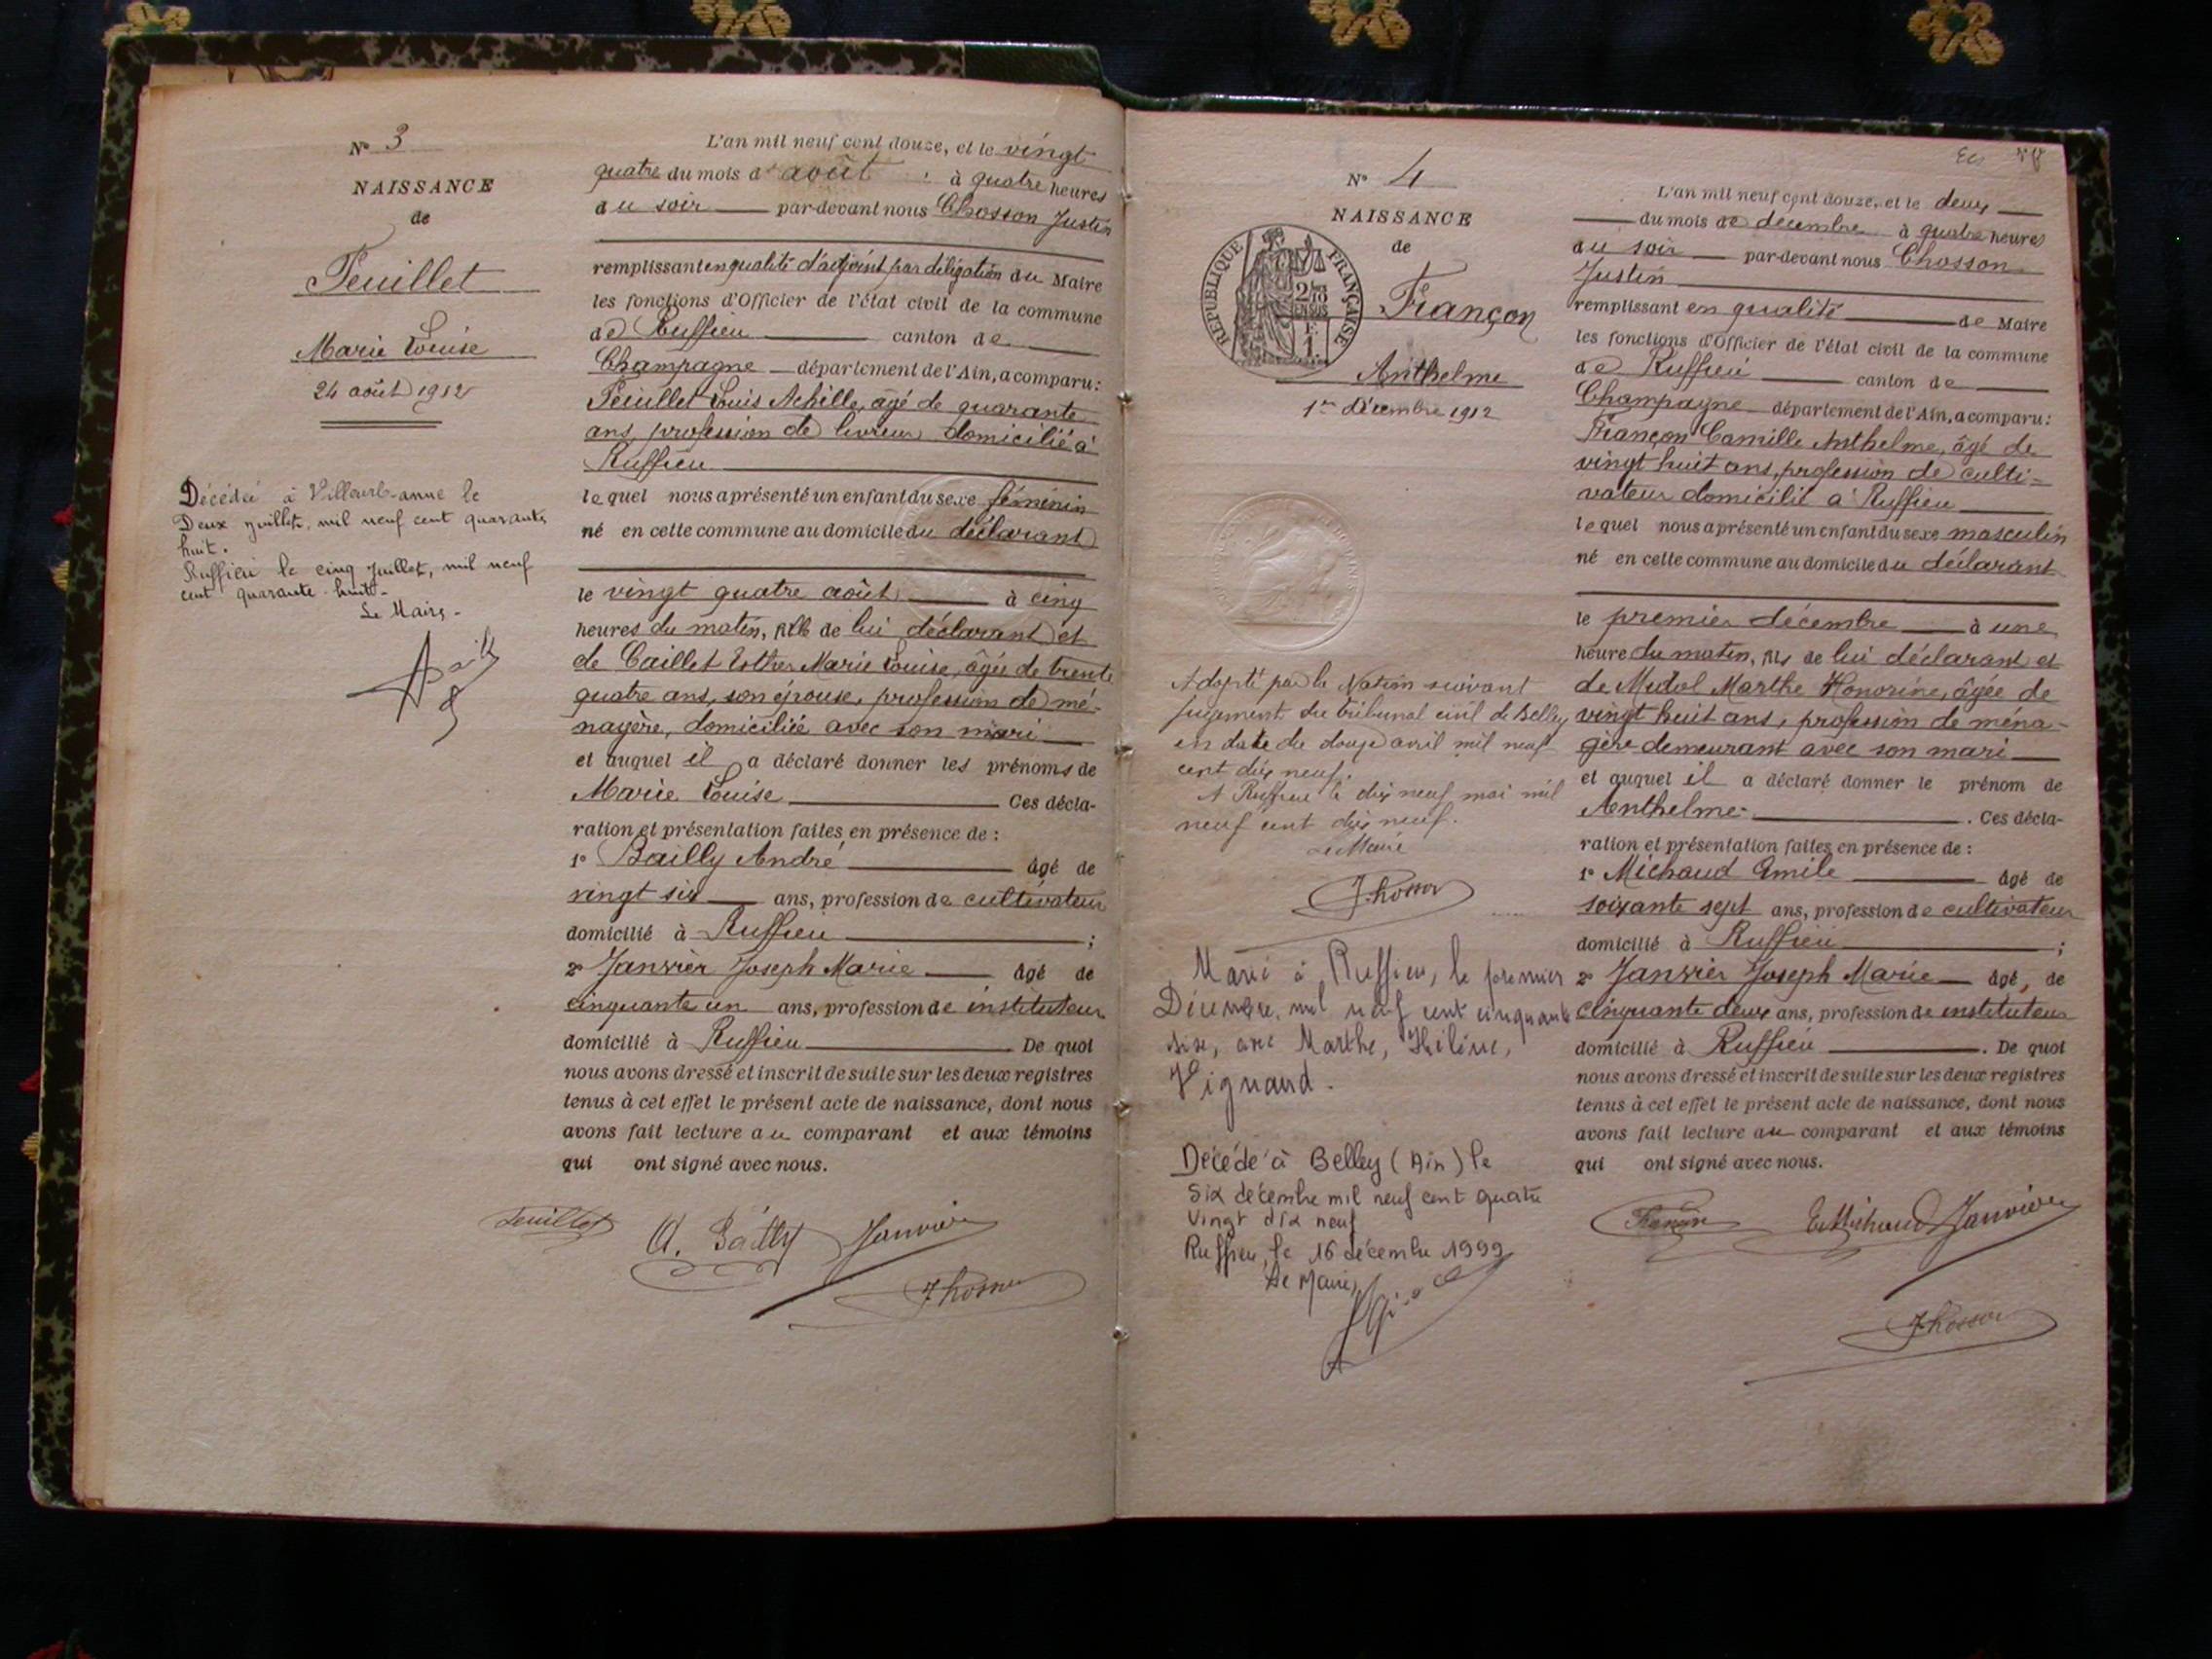 N° 3
NAISSANCE
de
Feuillet
Marie Louise
24 août 1912
Décédée à Villeurbanne le
Deux juillet, mil neuf cent quarante
huit.
Ruffieu le cinq Juillet, mil neuf
cent quarante-huit-
Le Maire-
L'an mil neuf cent douze, et le vingt
quatre du mois d'août à quatre heures
du soir par-devant nous Chosson Justin
remplissant en qualité d'adjoint par délégation du Maire
les fonctions d'Officier de l'état civil de la commune
de Ruffieu canton de
Champagne département de l'Ain, a comparu:
Feuillet Louis Achille, âgé de quarante
ans, profession de livreur domicilié à
Ruffieu
lequel nous a présenté un enfant du sexe féminin
né en cette commune au domicile du déclarant
le vingt quatre août à cinq
heures du matin, de lui déclarant et
de Caillet Esther Marie Louise, âgée de trente
quatre ans, son épouse, profession de mé-
nagère, domiciliée avec son mari
et auquel il a déclaré donner les prénoms de
Marie Louise Ces décla-
ration et présentation faites en présence de :
1° Bailly André âgé de
vingt six ans, profession de cultivateur
domicilié à Ruffieu ;
2° Janvier Joseph Marie âgé de
cinquante un ans, profession de instituteur
domicilié à Ruffieu De quoi
nous avons dressé et inscrit de suite sur les deux registres
tenus à cet effet le présent acte de naissance, dont nous
avons fait lecture au comparant et aux témoins
qui ont signé avec nous.
Feuillet A. Bailly Janvier
J Chosson
N° 4
NAISSANCE
de
RÉPUBLIQUE FRANÇAISE
Françon
Anthelme
1er décembre 1912
Adopté par la Nation suivant
jugement du tribunal civil de Belley
en date du douze avril mil neuf
cent dix neuf.
A Ruffieu le dix neuf mai mil
neuf cent dix neuf.
Le Maire
J Chosson
Marié à Ruffieu, le premier
Décembre, mil neuf cent cinquante
six, avec Marthe, Hélène,
Vignand.
Décédé à Belley (Ain) le
Six décembre mil neuf cent quatre
vingt dix neuf
Ruffieu, le 16 décembre 1999
Le Maire,
L'an mil neuf cent douze, et le deux
du mois de décembre à quatre heures
du soir par-devant nous Chosson
Justin
remplissant en qualité de Maire
les fonctions d'Officier de l'état civil de la commune
de Ruffieu canton de
Champagne département de l'Ain, a comparu:
Françon Camille Anthelme, âgé de
vingt huit ans, profession de culti-
vateur domicilié à Ruffieu
lequel nous a présenté un enfant du sexe masculin
né en cette commune au domicile du déclarant
le premier décembre à une
heure du matin, fils de lui déclarant et
de Midol Marthe Honorine, âgée de
vingt huit ans, profession de ména-
gère demeurant avec son mari
et auquel il a déclaré donner le prénom de
Anthelme. Ces décla-
ration et présentation faites en présence de :
1° Michaud Emile âgé de
soixante sept ans, profession de cultivateur
domicilié à Ruffieu ;
2° Janvier Joseph Marie âgé, de
cinquante deux ans, profession de instituteur
domicilié à Ruffieu . De quoi
nous avons dressé et inscrit de suite sur les deux registres
tenus à cet effet le présent acte de naissance, dont nous
avons fait lecture au comparant et aux témoins
qui ont signé avec nous.
Françon E Michaud Janvier
J Chosson